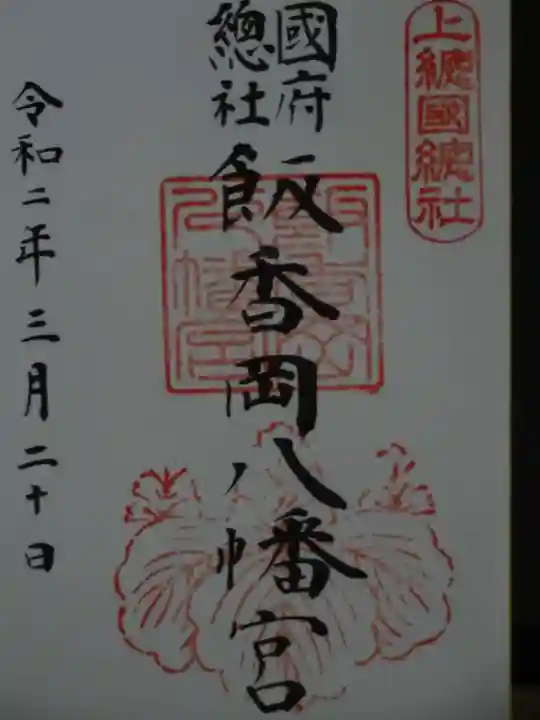 上總國總社
國府
總社
飯香岡八幡宮
令和二年三月二十日